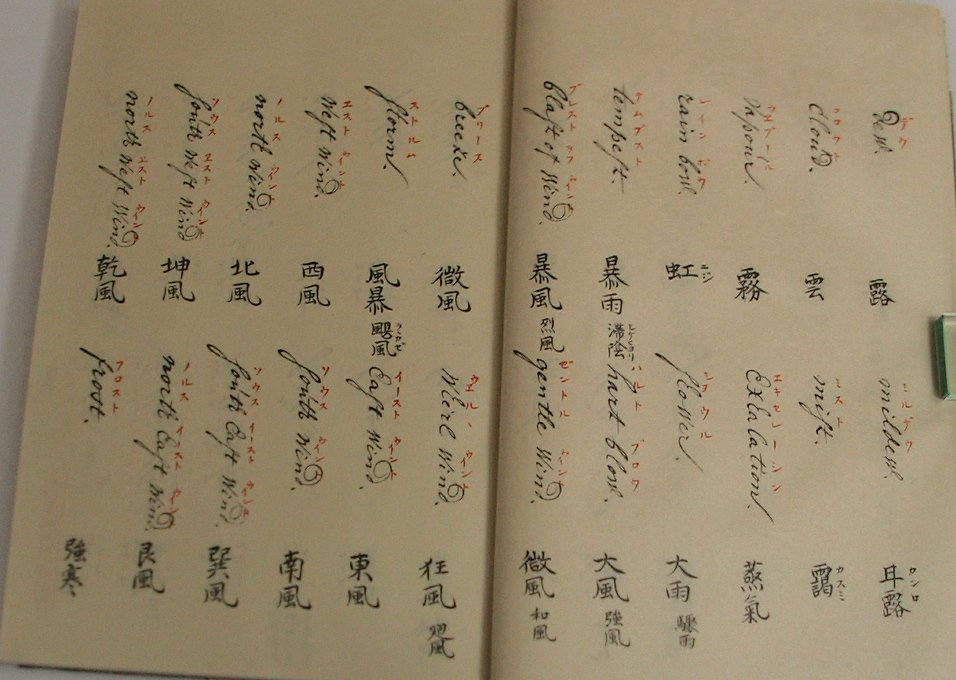 Dew. デウ 露
mildew. ミルデウ 甘露 カンロ
Cloud. 雲
miſt. ミスト 靄 カスミ
Vapour. 霧
Exlalation. エキセレーシン 蒸氣
rain bow. レイン ボウ 虹 ニジ
ſhower. 大雨 驟雨
tempeſt. テムプスト 暴雨
hart blow. ハルト ブロウ 大風 強風
blaſt of Wind. ブレスト ヲフ ウインド 暴風 烈風
gentle Wind. ゼントル ウインド 微風 和風
breeze. ブリース 微風
Wirl Wind. ウエルウインド 狂風 廻風
ſtorm. ストルム 風暴 颶風
Eaſt Wind. イースト ウインド 東風
Weſt Wind. エスト ウインド 西風
ſouth Wind. ソウス ウインド 南風
north Wind. ノルス ウインド 北風
ſouth Eaſt Wind. ソウス イースト ウインド 巽風
ſouth Weſt Wind. ソウス エスト ウインド 坤風
north Eaſt Wind. ノルス イースト ウインド 艮風
north Weſt Wind. ノルス エスト ウインド 乾風
frost. フロスト 強寒